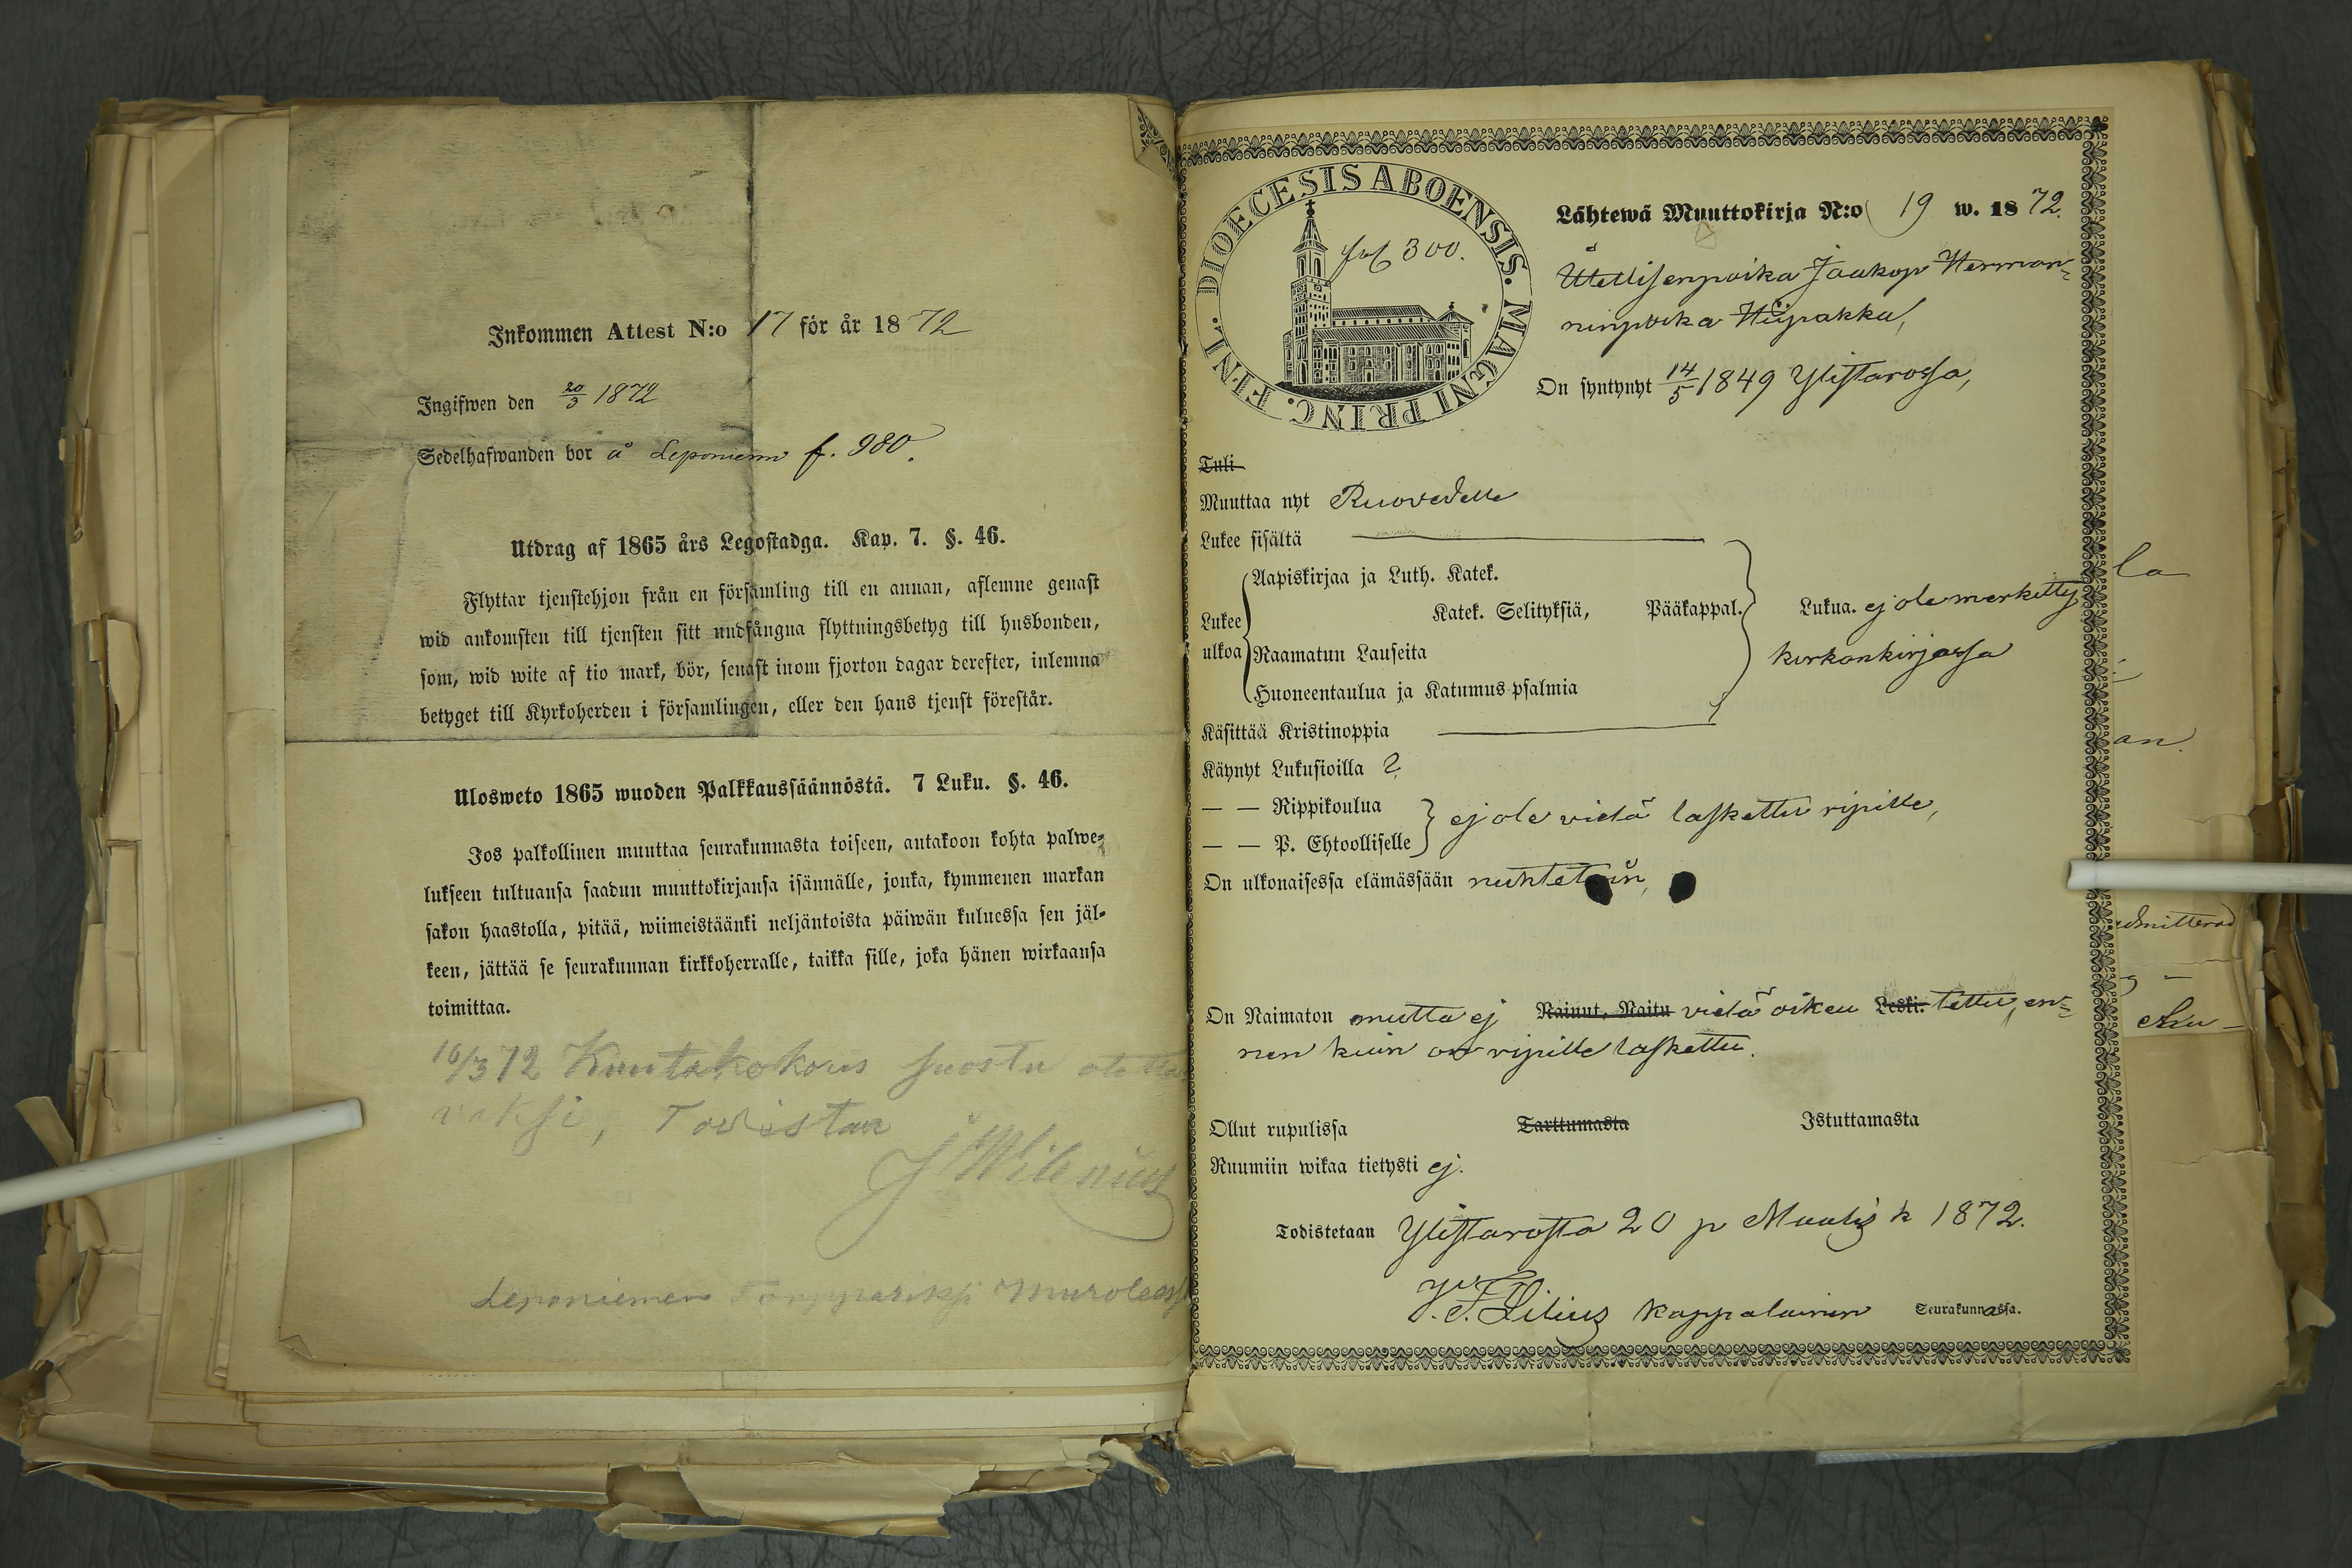 Inkommen Attest N:o 17 för år 1872
Ingifwen den 20/3 1872
Sedelhafwanden bor å Leponiemi f. 980.
Utdrag af 1865 års Legostadga. Kap. 7. §. 46.
Flyttar tjenstehjon från en församling till en annan, aflemne genast
wid ankomsten till tjensten sitt undfångna flyttningsbetyg till husbonden,
som, wid wite af tio mark, bör, senast inom fjorton dagar derefter, inlemna
betyget till Kyrkoherden i församlingen, eller den hans tjenst förestår.
Ulosweto 1865 wuoden Palkkaussäännöstä. 7 Luku. §. 46.
Jos palkollinen muuttaa seurakunnasta toiseen, antakoon kohta palwe-
lukseen tultuansa saadun muuttokirjansa isännälle, jonka, kymmenen markan
sakon haastolla, pitää, wiimeistäänki neljäntoista päiwän kuluessa sen jäl-
keen, jättää se seurakunnan kirkkoherralle, taikka sille, joka hänen wirkaansa
toimittaa.
16/3 72 Kuntakokous suostu otetta
vaksi, Todistaa
J Wilenius
Leponiemen Torppariksi Muroleess
DIOECESIS ABOENSIS. MAGNI PRINC. FINL.
fol 300.
Lähtewä Muuttokirja N:o 19 w. 1872.
Itellisenpoika Jaakop Herman-
ninpoika Hiipakka,
On syntynyt 14/5 1849 Ylistarossa,
Tuli
Muuttaa nyt Ruovedelle
Lukee sisältä
Lukee ulkoa
Aapiskirjaa ja Luth. Katek.
Katek. Selityksiä, Pääkappal.
Raamatun Lauseita
Huoneentaulua ja Katumus-psalmia
Lukua. ej ole merkitty
kirkonkirjassa
Käsittää Kristinoppia
Käynyt Lukusioilla ?
— — Rippikoulua
— — P. Ehtoolliselle
ej ole vielä laskettu ripille,
On ulkonaisessa elämässään nuhtetoin,
On Naimaton mutta ej Nainut, Naitu vielä oikeu Leski. tettu, en-
nen kuin on ripille laskettu.
Ollut rupulissa Tarttumasta Istuttamasta
Ruumiin wikaa tietysti ej.
Todistetaan Ylistarosta 20 p Maalis k 1872.
Lilius Kappalainen Seurakunnassa.
la
an.
admitterad